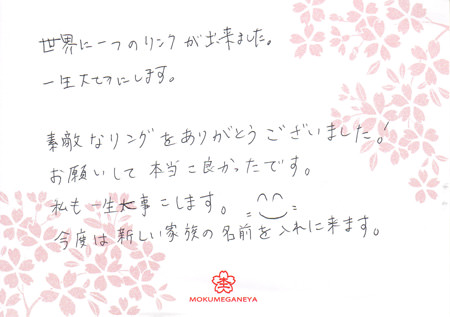 世界に一つのリングが出来ました。
一生大切にします。
素敵なリングをありがとうございました!
お願いして本当に良かったです。
私も一生大事にします。
今度は新しい家族の名前を入れに来ます。
MOKUMEGANEYA